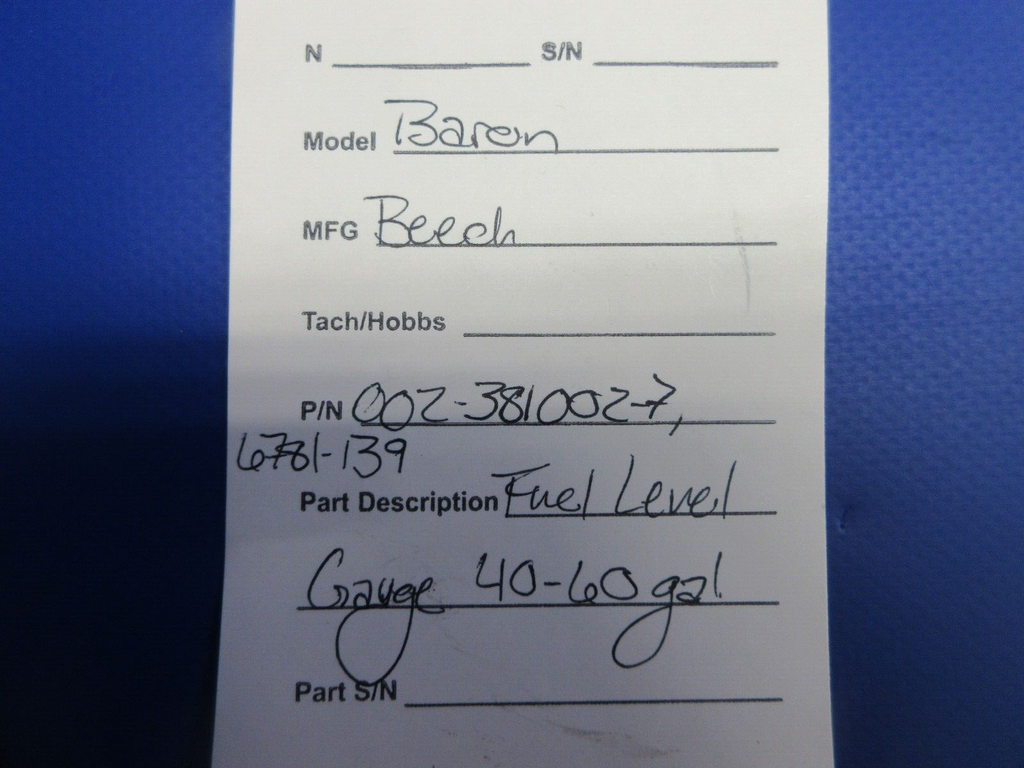 N S/N
Model Baron
MFG Beech
Tach/Hobbs
P/N 002-381002-7,
6781-139
Part Description Fuel Level
Gauge 40-60 gal
Part S/N